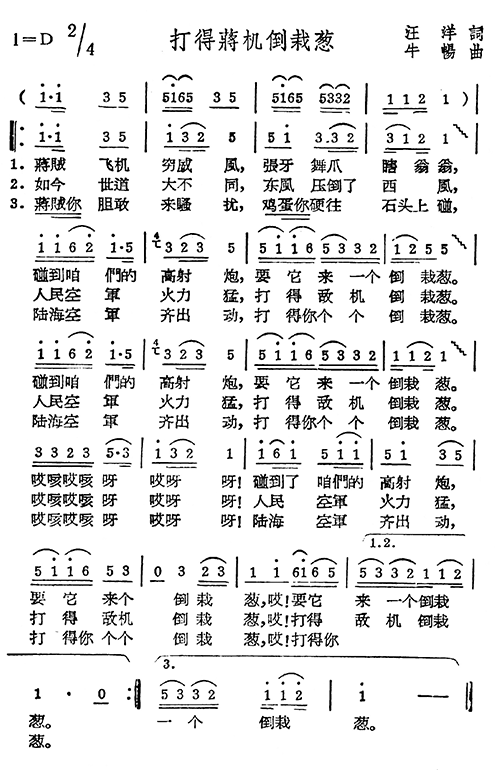 1=D 2/4 打得蔣机倒栽葱 汪洋 詞
牛暢 曲
( 1·1 3 5 | 5165 3 5 | 5165 5332 | 1 1 2 1 ) |
1·1 3 5 | 1 3 2 5 | 5 1 3·3 2 | 3 1 2 1 |
1. 蔣賊 飞机 穷威 風, 張牙 舞爪 瞎 翁翁,
2. 如今 世道 大不 同, 东風 压倒了 西 風,
3. 蔣賊你 胆敢 来騷 扰, 鸡蛋你硬往 石头上 碰,
1 1 6 2 1·5 | 3 2 3 5 | 5 1 1 6 5 3 3 2 | 1 2 5 5 |
碰到咱 們的 高射 炮, 要 它 来 一个 倒 栽葱。
人民空 軍 火力 猛, 打 得 敌 机 倒 栽葱。
陆海空 軍 齐出 动, 打 得你个 个 倒 栽葱。
1 1 6 2 1·5 | 3 2 3 5 | 5 1 1 6 5 3 3 2 | 1 2 1 1 |
碰到咱 們的 高射 炮, 要 它 来 一个 倒栽 葱。
人民空 軍 火力 猛, 打 得 敌 机 倒栽 葱。
陆海空 軍 齐出 动, 打 得你个 个 倒栽 葱。
3 3 2 3 5·3 | 1 3 2 1 | 5 1 6 5 3 5 | 5 1 3 5 |
哎咳哎咳 呀 哎呀 呀! 碰到了 咱們的 高射 炮,
哎咳哎咳 呀 哎呀 呀! 人民 空軍 火力 猛,
哎咳哎咳 呀 哎呀 呀! 陆海 空軍 齐出 动,
1.2.
5 1 1 6 5 3 | 0 3 2 3 | 1 1 6 1 6 5 | 5 3 3 2 1 1 2 |
要 它 来个 倒 栽 葱,哎!要它 来 一个倒栽
打 得 敌机 倒 栽 葱,哎!打得 敌 机 倒栽
打 得你 个个 倒 栽 葱,哎!打得你
3.
1 · 0 :‖ 5 3 3 2 | 1 1 2 | 1 — ‖
葱。 一 个 倒栽 葱。
葱。